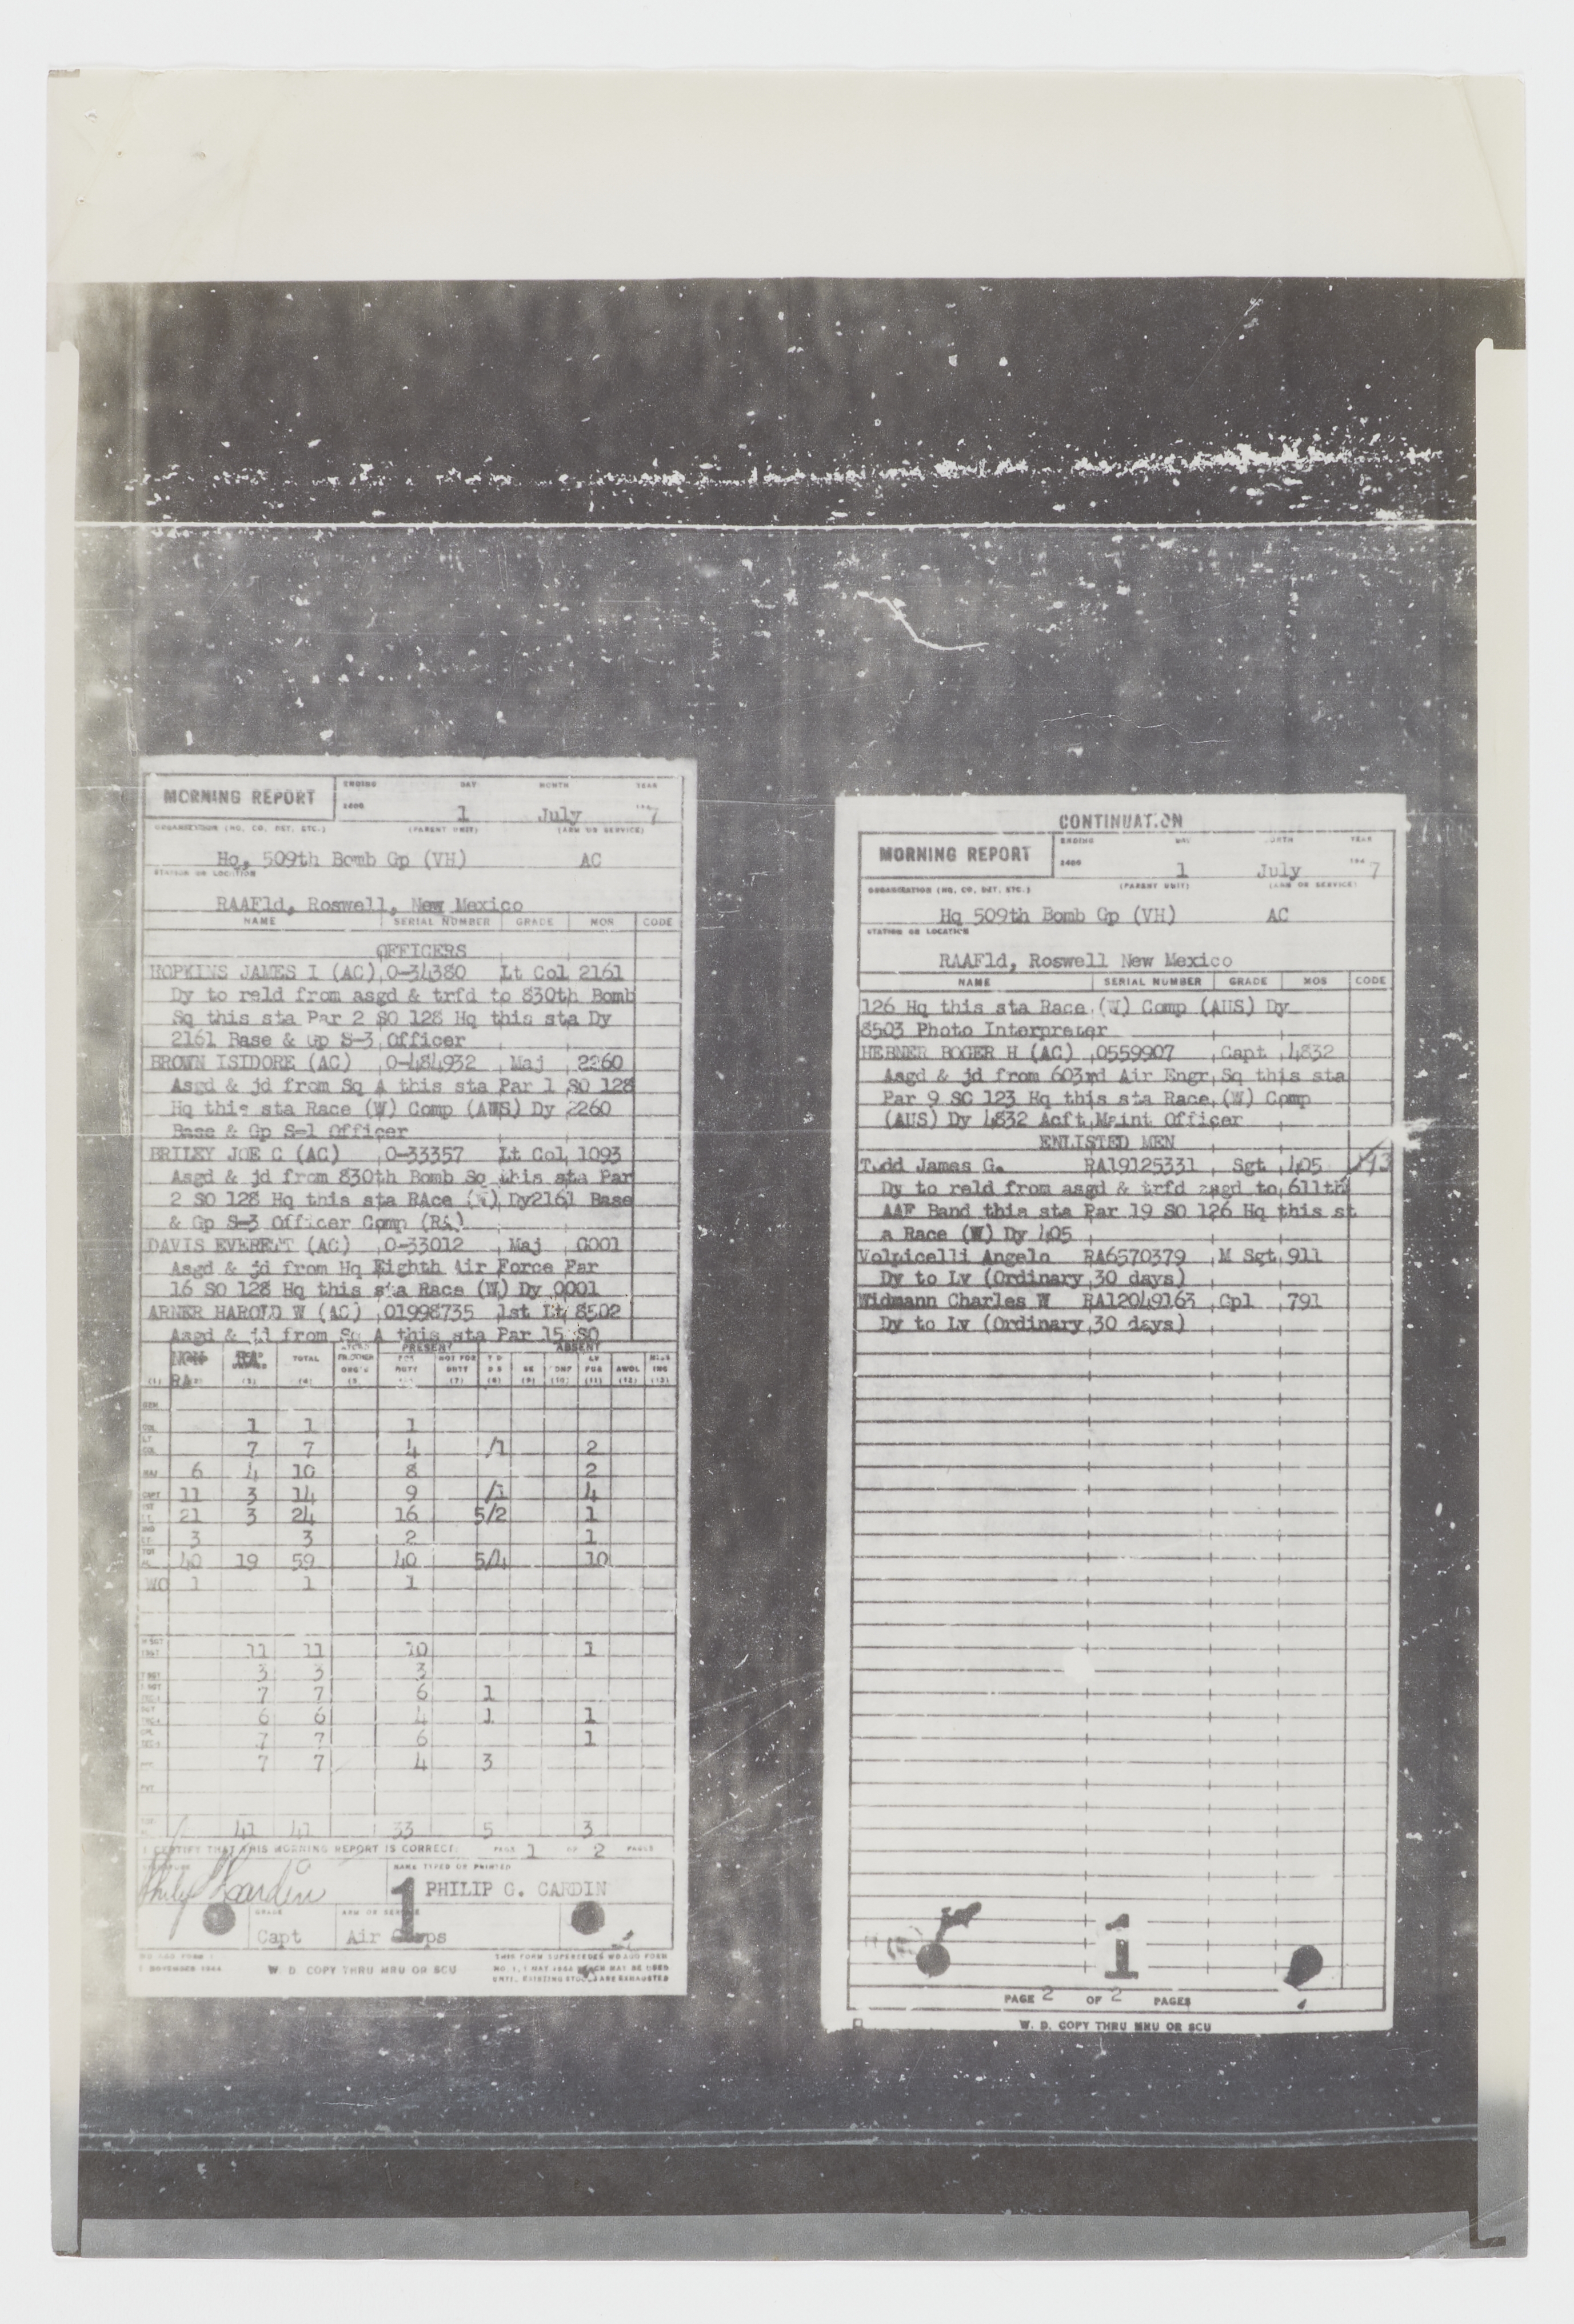 MORNING REPORT
ENDING DAY MONTH YEAR
2400 1 July 1947
ORGANIZATION (HQ. CO. DET. ETC.) (PARENT UNIT) (ARM OR SERVICE)
Hq, 509th Bomb Gp (VH) AC
STATION OR LOCATION
RAAFld, Roswell, New Mexico
NAME SERIAL NUMBER GRADE MOS CODE
OFFICERS
HOPKINS JAMES I (AC) 0-34380 Lt Col 2161
Dy to reld from asgd & trfd to 830th Bomb
Sq this sta Par 2 SO 128 Hq this sta Dy
2161 Base & Gp S-3 Officer
BROWN ISIDORE (AC) 0-484932 Maj 2260
Asgd & jd from Sq A this sta Par 1 SO 128
Hq this sta Race (W) Comp (AUS) Dy 2260
Base & Gp S-1 Officer
BRILEY JOE C (AC) 0-33357 Lt Col 1093
Asgd & jd from 830th Bomb Sq this sta Par
2 SO 128 Hq this sta RAce (W) Dy2161 Base
& Gp S-3 Officer Comp (RA)
DAVIS EVERETT (AC) 0-33012 Maj 0001
Asgd & jd from Hq Eighth Air Force Par
16 SO 128 Hq this sta Race (W) Dy 0001
ARNER HAROLD W (AC) 01998735 1st Lt 8502
Asgd & jd from Sq A this sta Par 15 SO
PRESENT ABSENT
NON RA RA TOTAL FOR DUTY NOT FOR DUTY T D D S SK CONF LV FUR AWOL MISS ING
(1) (2) (3) (4) (5) (7) (8) (9) (10) (11) (12) (13)
GEN
COL 1 1 1
LT COL 7 7 4 /1 2
MAJ 6 4 10 8 2
CAPT 11 3 14 9 /1 4
1ST LT 21 3 24 16 5/2 1
2ND LT 3 3 2 1
40 19 59 40 5/4 10
WO 1 1 1
M SGT 1 SGT 11 11 10 1
T SGT 3 3 3
7 7 6 1
6 6 4 1 1
7 7 6 1
PFC 7 7 4 3
PVT
41 41 33 5 3
I CERTIFY THAT THIS MORNING REPORT IS CORRECT. PAGE 1 OF 2 PAGES
SIGNATURE NAME TYPED OR PRINTED
Philip C Cardin PHILIP C. CARDIN
1
GRADE ARM OR SERVICE
Capt Air Corps
WD AGO FORM 1
1 NOVEMBER 1944
W D COPY THRU MRU OR SCU
THIS FORM SUPERSEDES WD AGO FORM
NO. 1, 1 MAY 1944 WHICH MAY BE USED
UNTIL EXISTING STOCKS ARE EXHAUSTED
CONTINUATION
MORNING REPORT
ENDING DAY MONTH YEAR
2400 1 July 1947
ORGANIZATION (HQ. CO. DET. ETC.) (PARENT UNIT) (ARM OR SERVICE)
Hq 509th Bomb Gp (VH) AC
STATION OR LOCATION
RAAFld, Roswell New Mexico
NAME SERIAL NUMBER GRADE MOS CODE
126 Hq this sta Race (W) Comp (AUS) Dy
8503 Photo Interpreter
HEBNER ROGER H (AC) 0559907 Capt 4832
Asgd & jd from 603rd Air Engr Sq this sta
Par 9 SO 123 Hq this sta Race (W) Comp
(AUS) Dy 4832 Acft Maint Officer
ENLISTED MEN
Todd James G. RA19125331 Sgt 405
Dy to reld from asgd & trfd asgd to 611th
AAF Band this sta Par 19 SO 126 Hq this st
a Race (W) Dy 405
Volpicelli Angelo RA6570379 M Sgt 911
Dy to Lv (Ordinary 30 days)
Widmann Charles W RA12049163 Cpl 791
Dy to Lv (Ordinary 30 days)
1
PAGE 2 OF 2 PAGES
W. D. COPY THRU MRU OR SCU